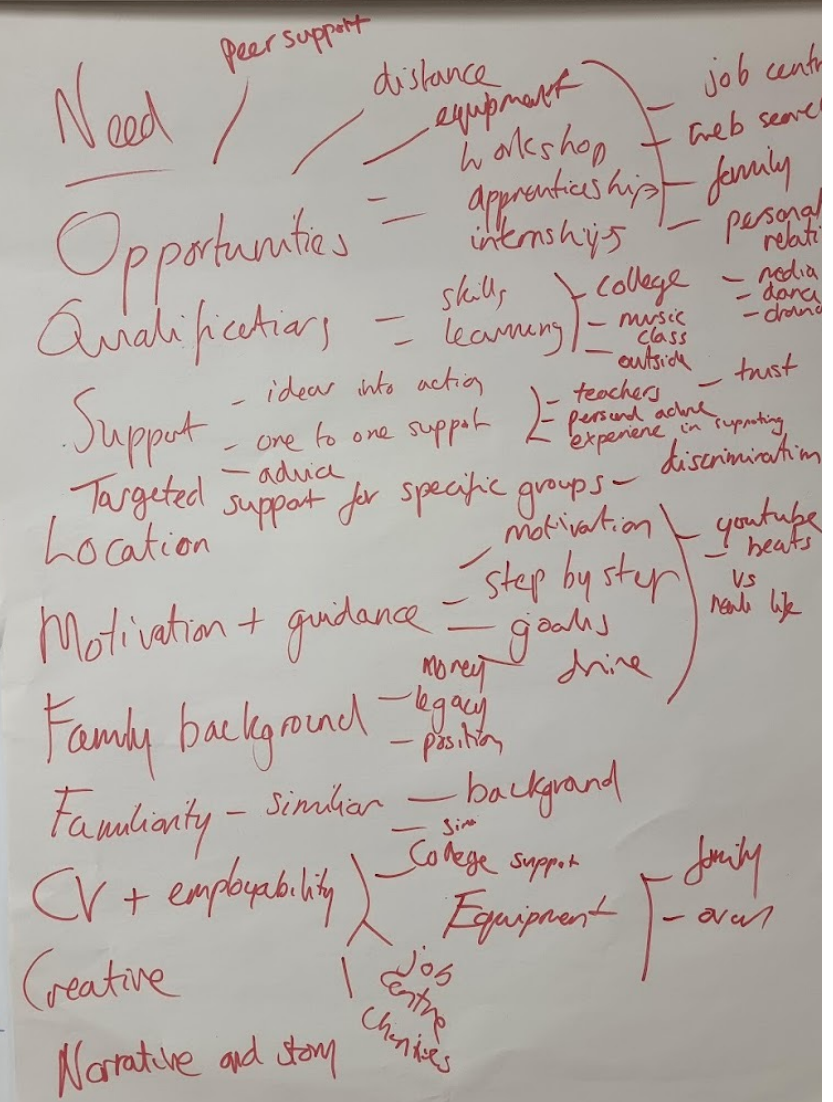 Peer support
Need
distance
equipment
workshop
apprenticeships
internships
job centr
web searc
family
personal
relati
Opportunities
Qualifications = skills
learning
college
music
class
outside
- media
- danc
- drama
Support - ideas into action
- one to one support
- advice
- teachers - trust
- personal advice
- experience in supporting
Targeted support for specific groups - discrimination
Location
Motivation + guidance = motivation
step by step
goals
drive
- youtube
- beats
vs
life
Family background - money
- legacy
- position
Familiarity - similiar - background
- sim
CV + employability - College support
Equipment - family
- own
Job
Centre
Charities
Creative
Narrative and story